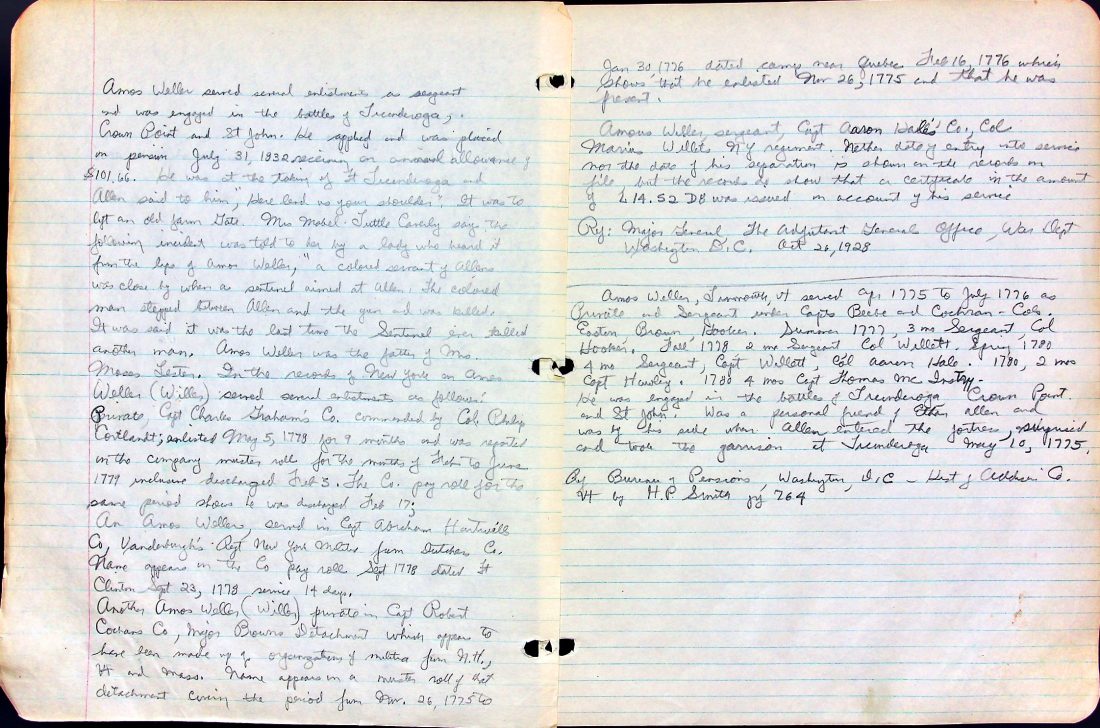 Amos Weller served several enlistments as sergeant
and was engaged in the battles of Ticonderoga,
Crown Point and St John. He applied and was placed
on pension July 31, 1932 receiving an annual allowance of
$101.66. He was at the taking of Ft Ticonderoga and
Allen said to him, "Here lend us your shoulder". It was to
lift an old farm gate. Mrs Mabel Tuttle says the
following incident was told to her by a lady who heard it
from the lips of Amos Weller, "a colored servant of Allens
was close by when a sentinel aimed at Allen. The colored
man stepped between Allen and the gun and was killed.
It was said it was the last time the Sentinel ever killed
another man. Amos Weller was the father of Mrs.
Moses Lester. In the records of New York an Amos
Weller (Willer) served several enlistments as follows:
Private, Capt Charles Graham's Co. commanded by Col. Philip
Cortlandt; enlisted May 5, 1778 for 9 months and was reported
in the company muster roll for the months of Feb to June
1779 inclusive discharged Feb 3. The Co. pay roll for the
same period shows he was discharged Feb 17;
An Amos Weller, served in Capt Abraham Hartwells
Co, Vanderburgh's Regt New York Militia from Dutchess Co.
Name appears on the Co pay roll Sept 1778 dated Ft
Clinton Sept 23, 1778 service 14 days.
Another Amos Weller (Willer) private in Capt Robert
Cochrans Co, Major Browns Detachment which appears to
have been made up of organizations of militia from N.H.,
Vt and Mass. Name appears on a muster roll of that
detachment covering the period from Nov. 26, 1775 to
Jan 30, 1776 dated camp near Quebec Feb 16, 1776 which
shows that he enlisted Nov 26, 1775 and that he was
present.
Amous Weller, sergeant, Capt Aaron Hale's Co., Col
Marius Willets NY regiment. Nether date of entry into service
nor the date of his separation is shown on the records on
file but the records do show that a certificate in the amount
of £14.52 was issued on account of his service
Ref: Major General The Adjutant Generals Office, War Dept
Washington D.C. Oct 26, 1928
Amos Weller, Tinmouth, Vt served Apr 1775 to July 1776 as
Private and Sergeant under Capts Beebe and Cochran - Cols.
Easton Brown Hooker. Summer 1777, 3 mo Sergeant Col
Hooker. Fall 1778 2 mo Sergeant Col Willett. Spring 1780
4 mo Sergeant, Capt Willett, Col Aaron Hale. 1780, 2 mos
Capt Hawley. 1780 4 mos Capt Thomas Mc Instry.
He was engaged in the battles of Ticonderoga Crown Point
and St John. Was a personal friend of Ethan Allen and
was by his side when Allen entered the fortress, surprised
and took the garrison at Ticonderoga May 10, 1775.
By Bureau of Pensions, Washington, D.C - Hist of Addison Co.
Vt by H.P. Smith pg 764